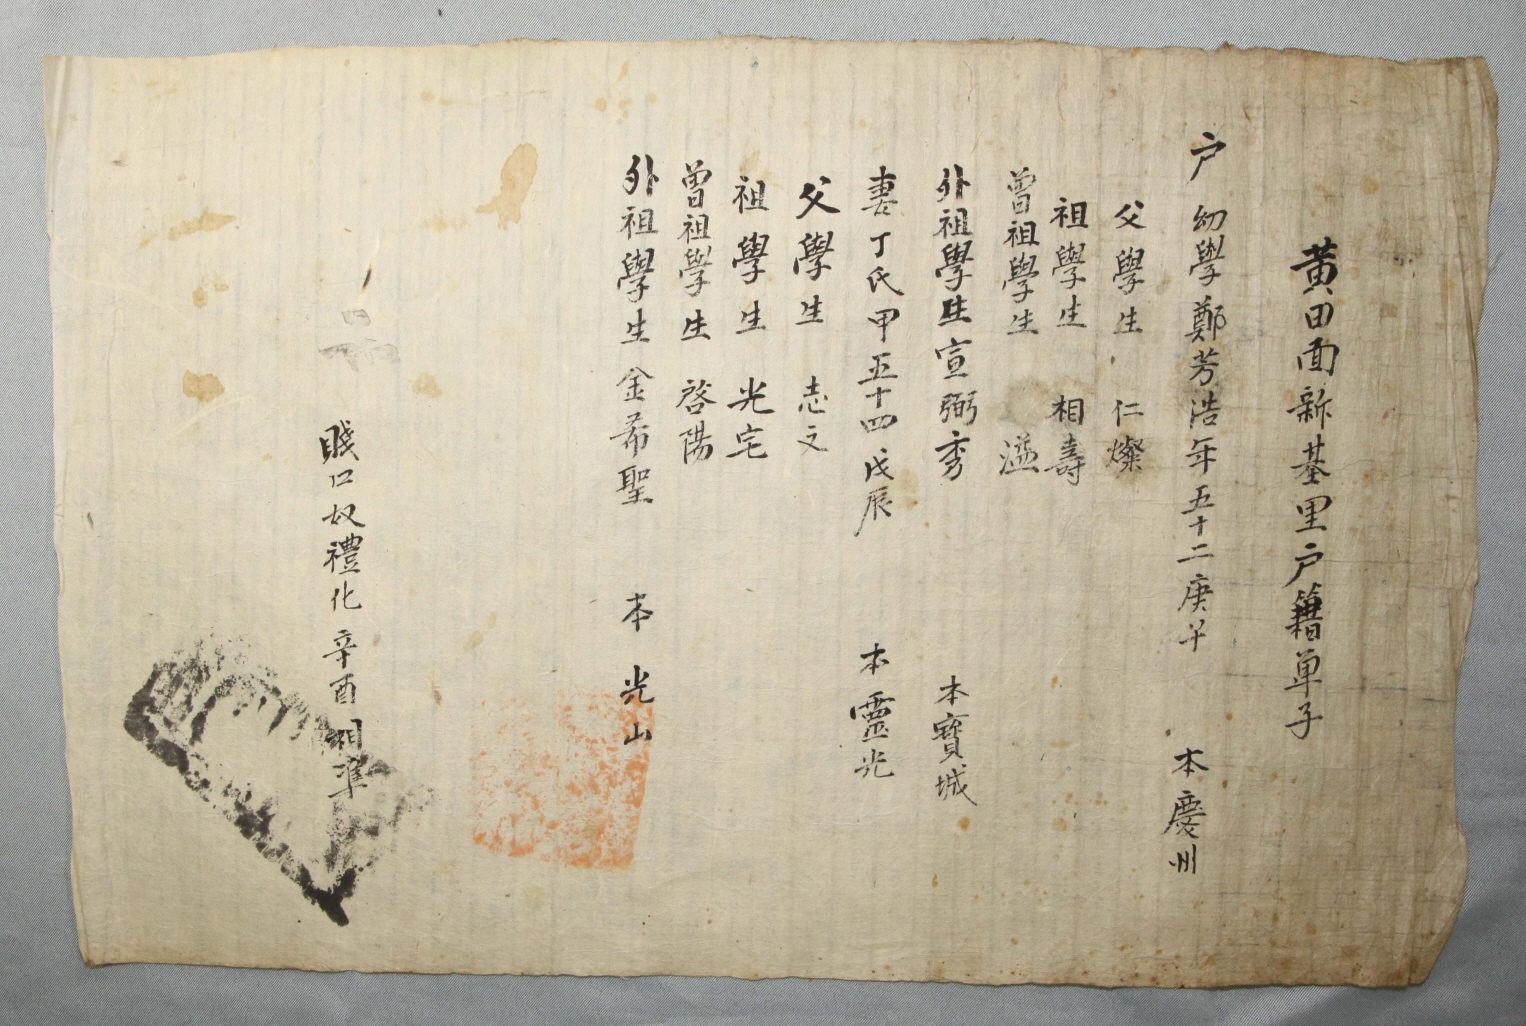 黃田面新基里户籍單子
户 幼學鄭芳浩年五十二庚午 本慶州
父學生 仁燦
祖學生 相壽
曾祖學生 溢
外祖學生宣弼秀 本寶城
妻丁氏甲五十四戊辰 本靈光
父學生 志文
祖學生 光宅
曾祖學生 啓陽
外祖學生金希聖 本光山
賤口奴禮化辛酉相準